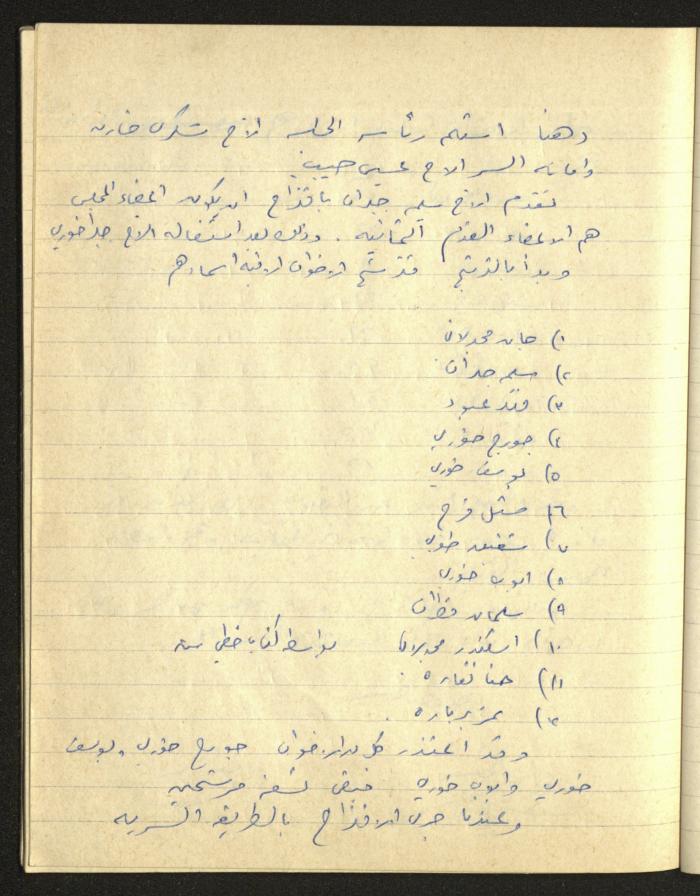 وهنا استلم رئاسه الجلسه الاخ شكري خازن
وامانه السر الاخ عيسى حبيب
تقدم الاخ سليم جدان باقتراح ان يكون اعضاء المجلس
هم الاعضاء القدم الثمانيه . وذلك بعد استقاله الاخ خوري
وبدأ بالترشيح فترشح الاخوان الاتيه اسماءهم
١) جان مجدلاني
٢) سليم جدان
٣) فؤاد عبود
٤) جورج خوري
٥) يوسف خوري
٦) ميشل فرح
٧) خوري
٨) ايوب خوري
٩) سليمان
١٠) اسكندر مجدلاني بواسطه كتاب خطي منه
١١) حنا نقاره .
١٢) .
وقد اعتذر كل من الاخوان جورج خوري ويوسف
خوري وايوب خوري فبقى تسعة مرشحين
وعندها جرى الاقتراح بالطريقه السريه